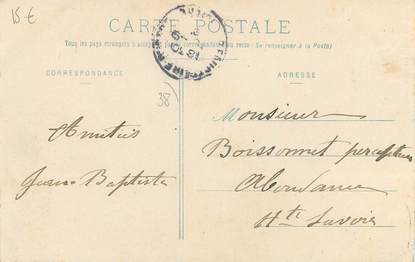 15€
CARTE POSTALE
Tous les pays étrangers n'acceptent pas la correspondance au recto. (Se renseigner à la Poste)
CORRESPONDANCE
ADRESSE
38
Amitiés
Jean-Baptiste
Monsieur
Boissonnet percepteur
Abondance
Hte Savoie